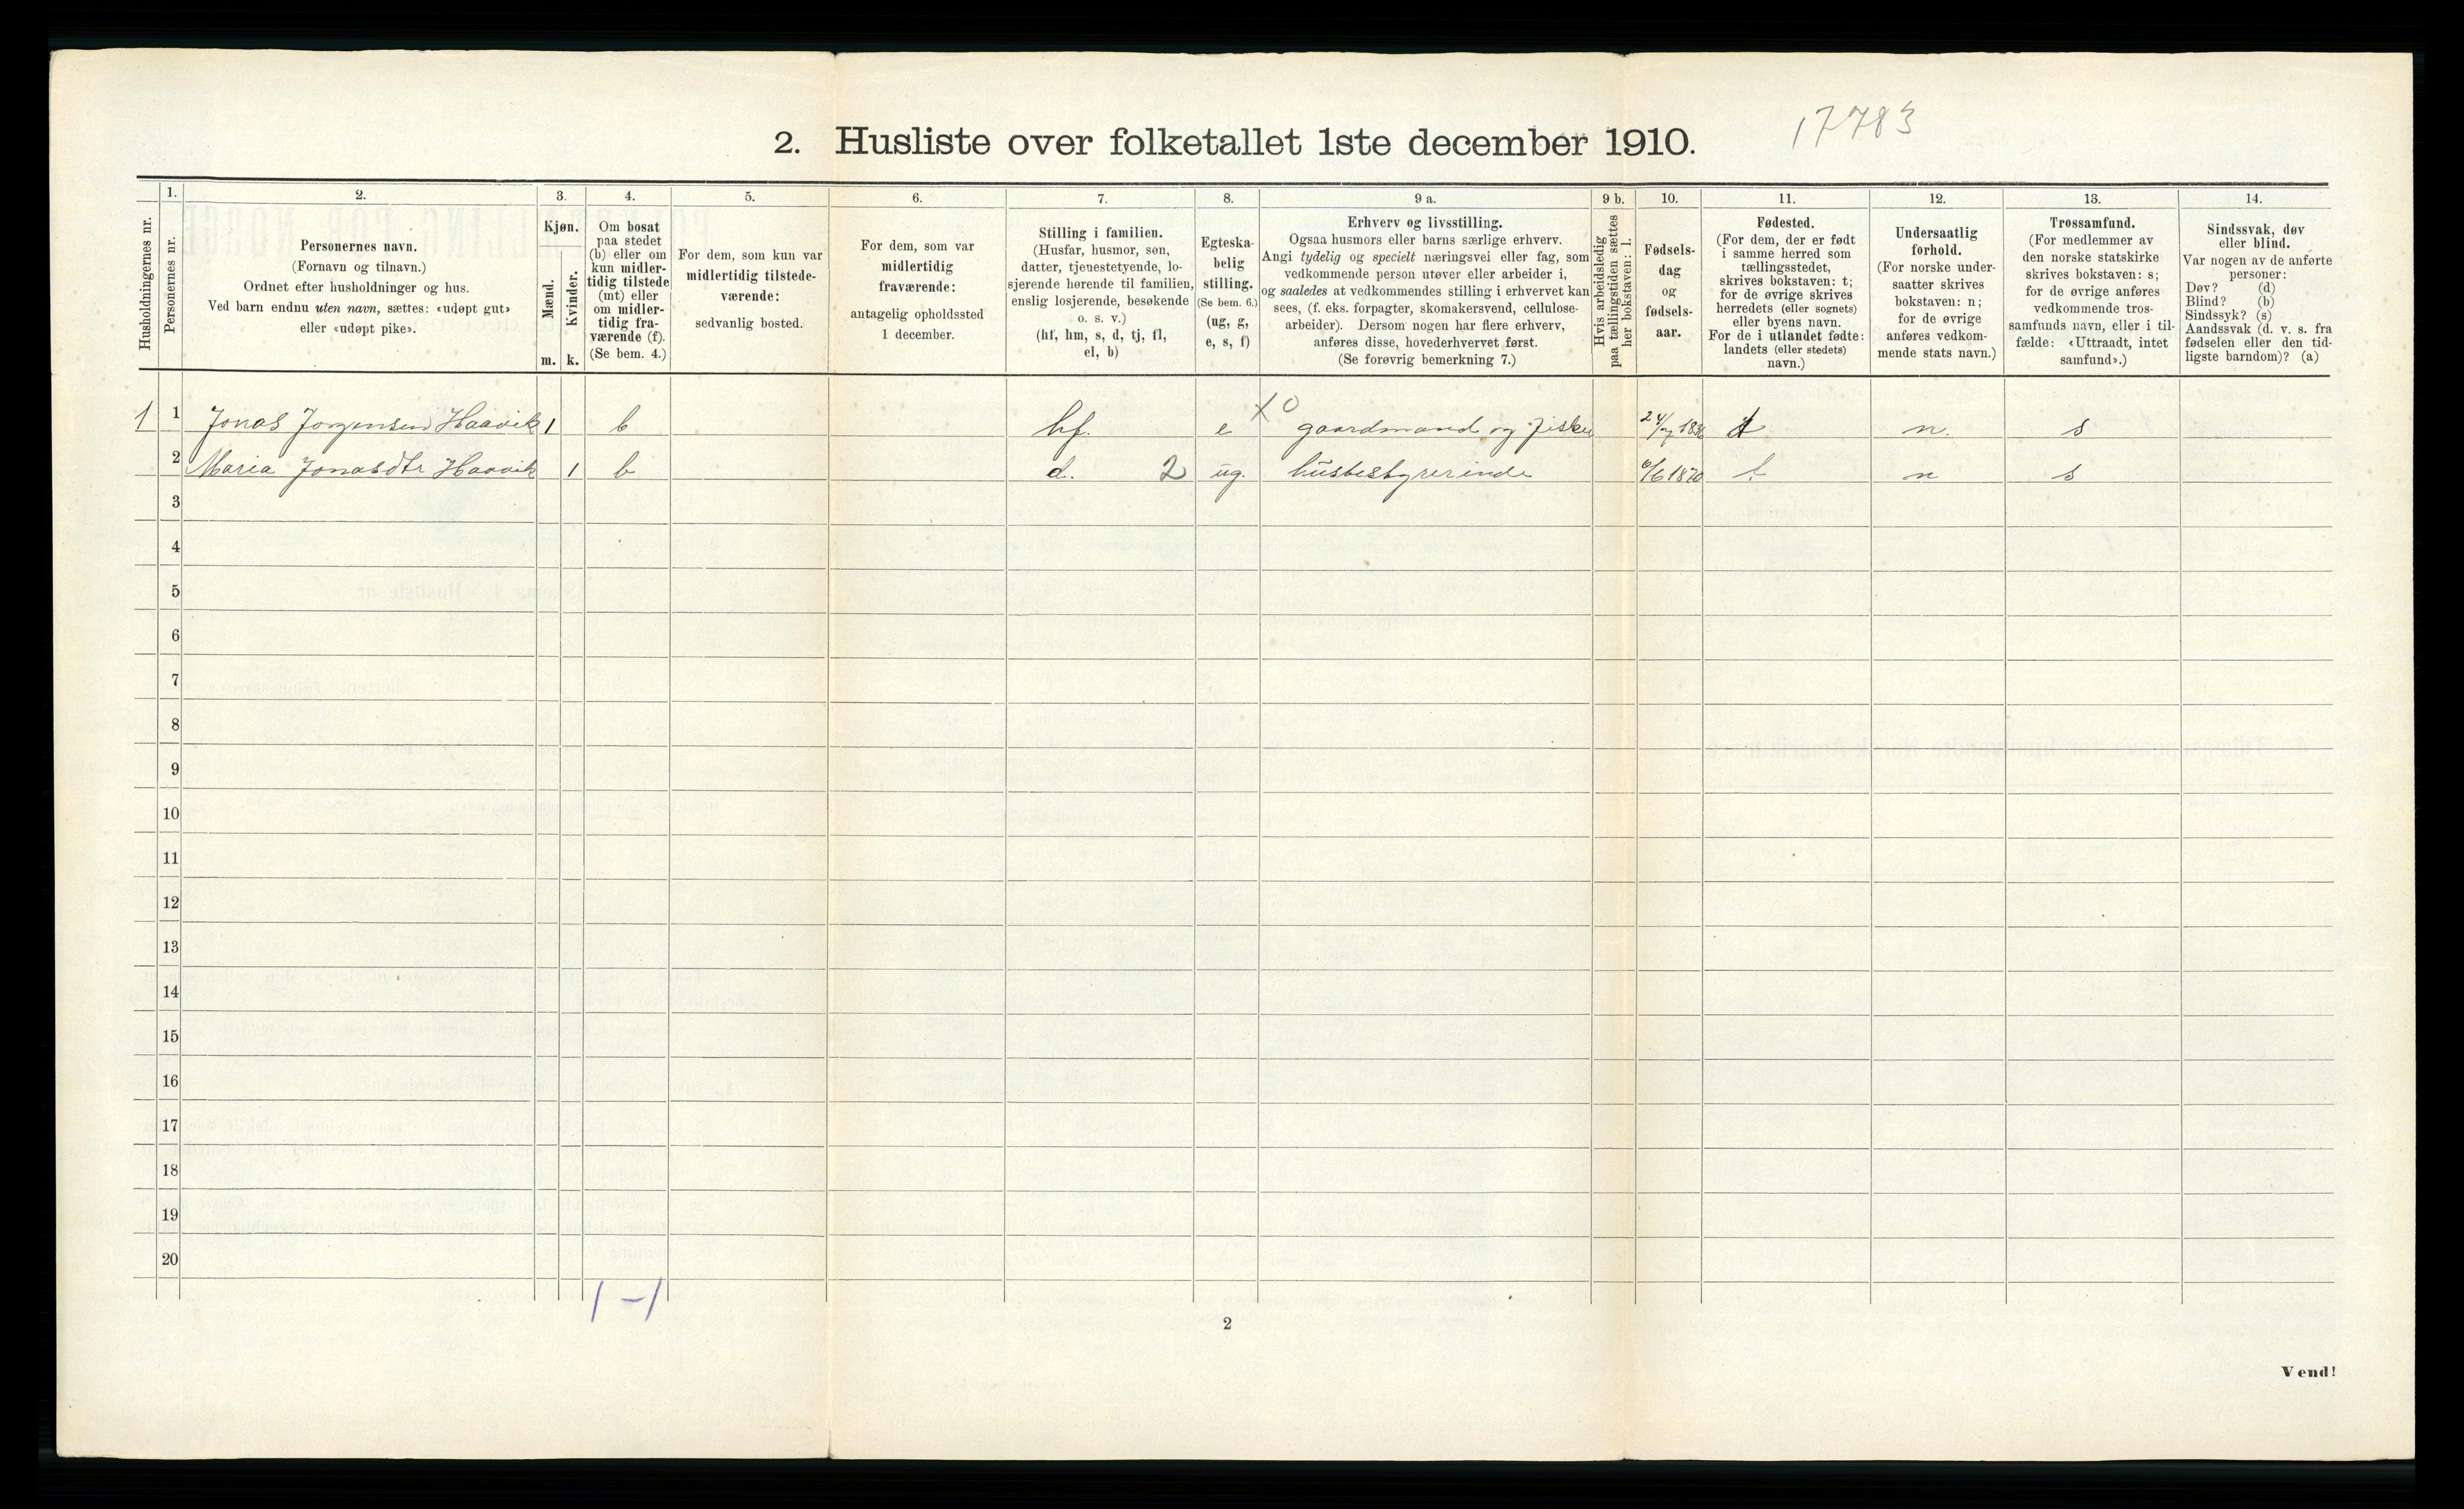 17783
2. Husliste over folketallet 1ste december 1910.
Husholdningernes nr.
1.
Personernes nr.
2.
Personernes navn.
(Fornavn og tilnavn.)
Ordnet efter husholdninger og hus.
Ved barn endnu uten navn, sættes: «udøpt gut»
eller «udøpt pike».
3.
Kjøn.
Mænd.
Kvinder.
m. k.
4.
Om bosat
paa stedet
(b) eller om
kun midler-
tidig tilstede
(mt) eller
om midler-
tidig fra-
værende (f).
(Se bem. 4.)
5.
For dem, som kun var
midlertidig tilstede-
værende:
sedvanlig bosted.
6.
For dem, som var
midlertidig
fraværende:
antagelig opholdssted
1 december.
7.
Stilling i familien.
(Husfar, husmor, søn,
datter, tjenestetyende, lo-
sjerende hørende til familien,
enslig losjerende, besøkende
o. s. v.)
(hf, hm, s, d, tj, fl,
el, b)
8.
Egteska-
belig
stilling.
(Se bem. 6.)
(ug, g,
e, s, f)
9 a.
Erhverv og livsstilling.
Ogsaa husmors eller barns særlige erhverv.
Angi tydelig og specielt næringsvei eller fag, som
vedkommende person utøver eller arbeider i,
og saaledes at vedkommendes stilling i erhvervet kan
sees, (f. eks. forpagter, skomakersvend, cellulose-
arbeider). Dersom nogen har flere erhverv,
anføres disse, hovederhvervet først.
(Se forøvrig bemerkning 7.)
9 b.
Hvis arbeidsledig
paa tællingstiden sættes
her bokstaven: l.
10.
Fødsels-
dag
og
fødsels-
aar.
11.
Fødested.
(For dem, der er født
i samme herred som
tællingsstedet,
skrives bokstaven: t;
for de øvrige skrives
herredets (eller sognets)
eller byens navn.
For de i utlandet fødte:
landets (eller stedets)
navn.)
12.
Undersaatlig
forhold.
(For norske under-
saatter skrives
bokstaven: n;
for de øvrige
anføres vedkom-
mende stats navn.)
13.
Trossamfund.
(For medlemmer av
den norske statskirke
skrives bokstaven: s;
for de øvrige anføres
vedkommende tros-
samfunds navn, eller i til-
fælde: «Uttraadt, intet
samfund».)
14.
Sindssvak, døv
eller blind.
Var nogen av de anførte
personer:
Døv? (d)
Blind? (b)
Sindssyk? (s)
Aandssvak (d. v. s. fra
fødselen eller den tid-
ligste barndom)? (a)
1 1 Jonas Jorgensen Haavik 1 b hf. e X0 gaardmand og fisker t n. s
2 Maria Jonasdtr Haavik 1 b d. 2 ug. husbestyrerinde 6/6 1870 t n s
3
4
5
6
7
8
9
10
11
12
13
14
15
16
17
18
19
20
1 - 1
2
Vend!